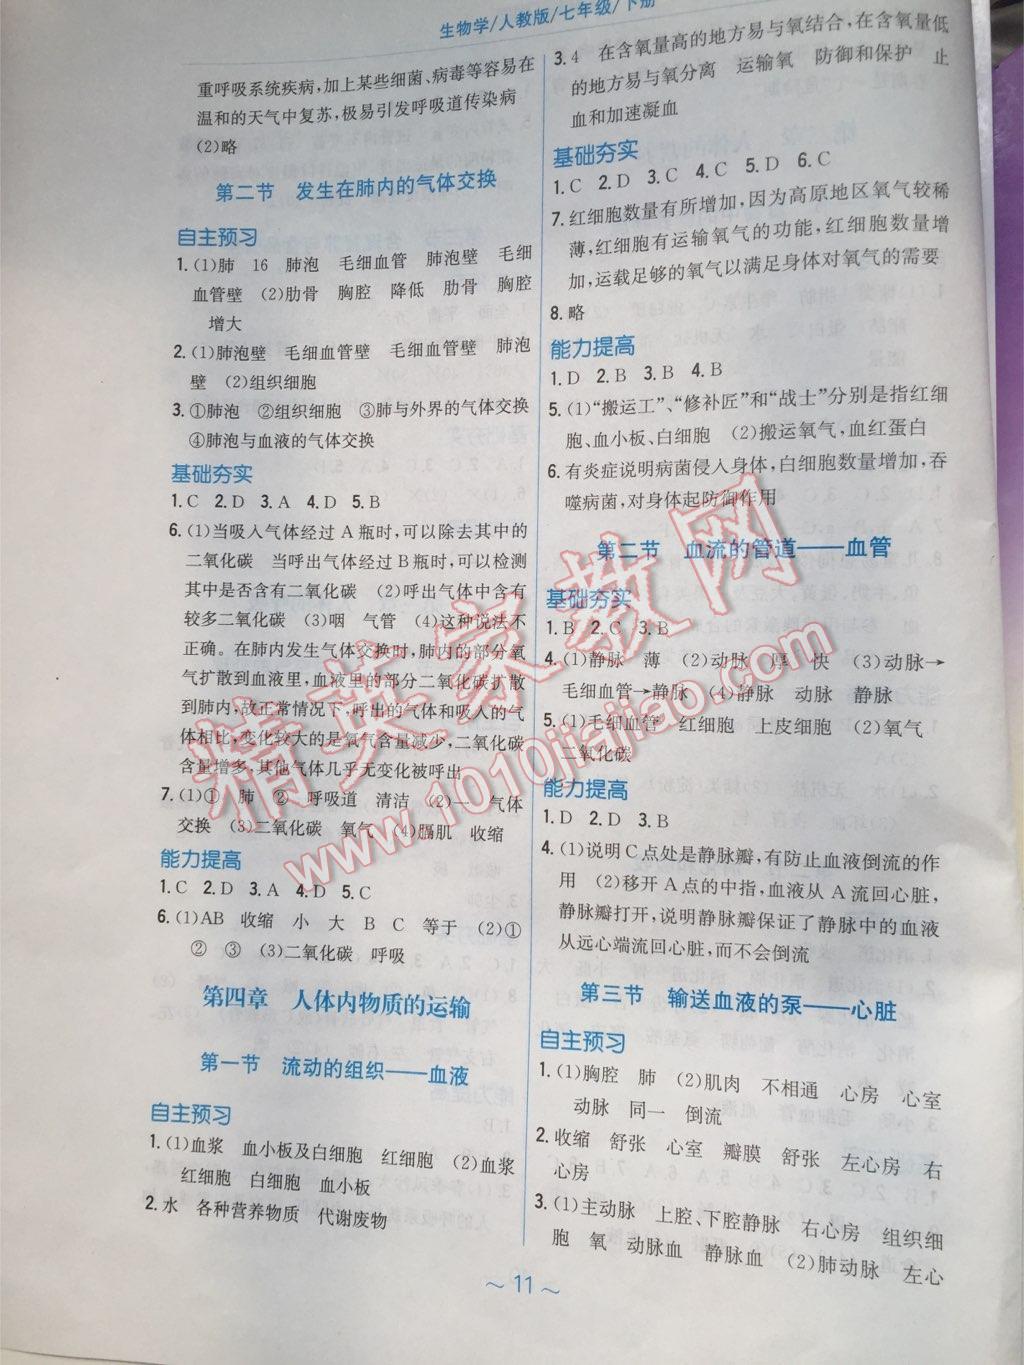 生物学/人教版/七年级/下册
重呼吸系统疾病,加上某些细菌、病毒等容易在
温和的天气中复苏,极易引发呼吸道传染病
(2)略
第二节 发生在肺内的气体交换
自主预习
1.(1)肺 16 肺泡 毛细血管 肺泡壁 毛细
血管壁 (2)肋骨 胸腔 降低 肋骨 胸腔
增大
2.(1)肺泡壁 毛细血管壁 毛细血管壁 肺泡
壁 (2)组织细胞
3.①肺泡 ②组织细胞 ③肺与外界的气体交换
④肺泡与血液的气体交换
基础夯实
1.C 2.D 3.A 4.D 5.B
6.(1)当吸入气体经过 A 瓶时,可以除去其中的
二氧化碳 当呼出气体经过 B 瓶时,可以检测
其中是否含有二氧化碳 (2)呼出气体中含有
较多二氧化碳 (3)咽 气管 (4)这种说法不
正确。在肺内发生气体交换时,肺内的部分氧
气扩散到血液里,血液里的部分二氧化碳扩散
到肺内,故正常情况下,呼出的气体和吸入的气
体相比,变化较大的是氧气含量减少,二氧化碳
含量增多,其他气体几乎无变化被呼出
7.(1)① 肺 ② 呼吸道 清洁 (2)一 气体
交换 (3)二氧化碳 氧气 (4)膈肌 收缩
能力提高
1.C 2.D 3.A 4.D 5.C
6.(1)AB 收缩 小 大 B C 等于 (2)①
② ③ (3)二氧化碳 呼吸
第四章 人体内物质的运输
第一节 流动的组织——血液
自主预习
1.(1)血浆 血小板及白细胞 红细胞 (2)血浆
红细胞 白细胞 血小板
2.水 各种营养物质 代谢废物
3.4 在含氧量高的地方易与氧结合,在含氧量低
的地方易与氧分离 运输氧 防御和保护 止
血和加速凝血
基础夯实
1.C 2.D 3.C 4.C 5.D 6.C
7.红细胞数量有所增加,因为高原地区氧气较稀
薄,红细胞有运输氧气的功能,红细胞数量增
加,运载足够的氧气以满足身体对氧气的需要
8.略
能力提高
1.D 2.B 3.B 4.B
5.(1)“搬运工”、“修补匠”和“战士”分别是指红细
胞、血小板、白细胞 (2)搬运氧气,血红蛋白
6.有炎症说明病菌侵入人身体,白细胞数量增加,吞
噬病菌,对身体起防御作用
第二节 血流的管道——血管
基础夯实
1.B 2.C 3.B
4.(1)静脉 薄 (2)动脉 厚 快 (3)动脉→
毛细血管→静脉 (4)静脉 动脉 静脉
5.(1)毛细血管 红细胞 上皮细胞 (2)氧气
二氧化碳
能力提高
1.D 2.D 3.B
4.(1)说明 C 点处是静脉瓣,有防止血液倒流的作
用 (2)移开 A 点的中指,血液从 A 流回心脏,
静脉瓣打开,说明静脉瓣保证了静脉中的血液
从远心端流回心脏,而不会倒流
第三节 输送血液的泵——心脏
自主预习
1.(1)胸腔 肺 (2)肌肉 不相通 心房 心室
动脉 同一 倒流
2.收缩 舒张 心室 瓣膜 舒张 左心房 右
心房
3.(1)主动脉 上腔、下腔静脉 右心房 组织细
胞 氧 动脉血 静脉血 (2)肺动脉 左心
～11～
精英家教网
www.1010jiajiao.com